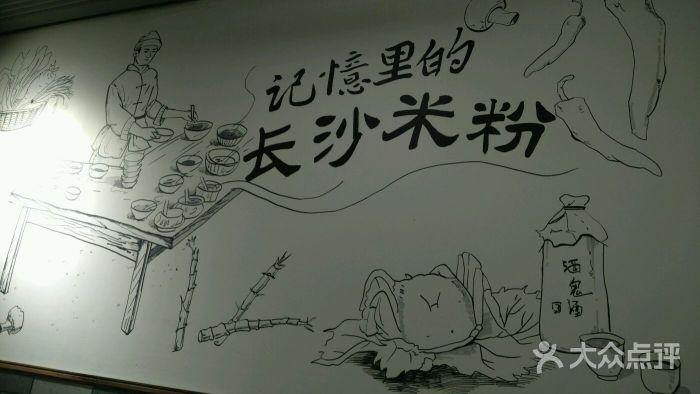 记憶里的
长沙米粉
酒鬼
酒
大众点评